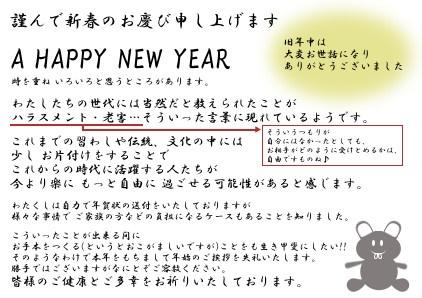 謹んで新春のお慶び申し上げます
A HAPPY NEW YEAR
旧年中は
大変お世話になり
ありがとうございました
時を重ね いろいろと思うところがあります。
わたしたちの世代には当然だと教えられたことが
ハラスメント・老害…そういった言葉に現れているようです。
そういうつもりが
自分にはなかったとしても、
お相手がどのように受けとめるかは、
自由ですものね♪
これまでの習わしや伝統、文化の中には
少し お片付けをすることで
これからの時代に活躍する人たちが
今より楽に もっと自由に 過ごせる可能性があると感じます。
わたくしは自力で年賀状の送付をいたしておりますが
様々な事情で ご家族の方などの負担になるケースもあることを知りました。
こういったことが出来る間に
お手本をつくる(というとおこがましいですが)ことをも生き甲斐にしたい!!
そのようなわけで本年をもちまして年始のご挨拶を失礼いたします。
勝手ではございますがなにとぞご容赦ください。
皆様のご健康とご多幸をお祈りいたしております。